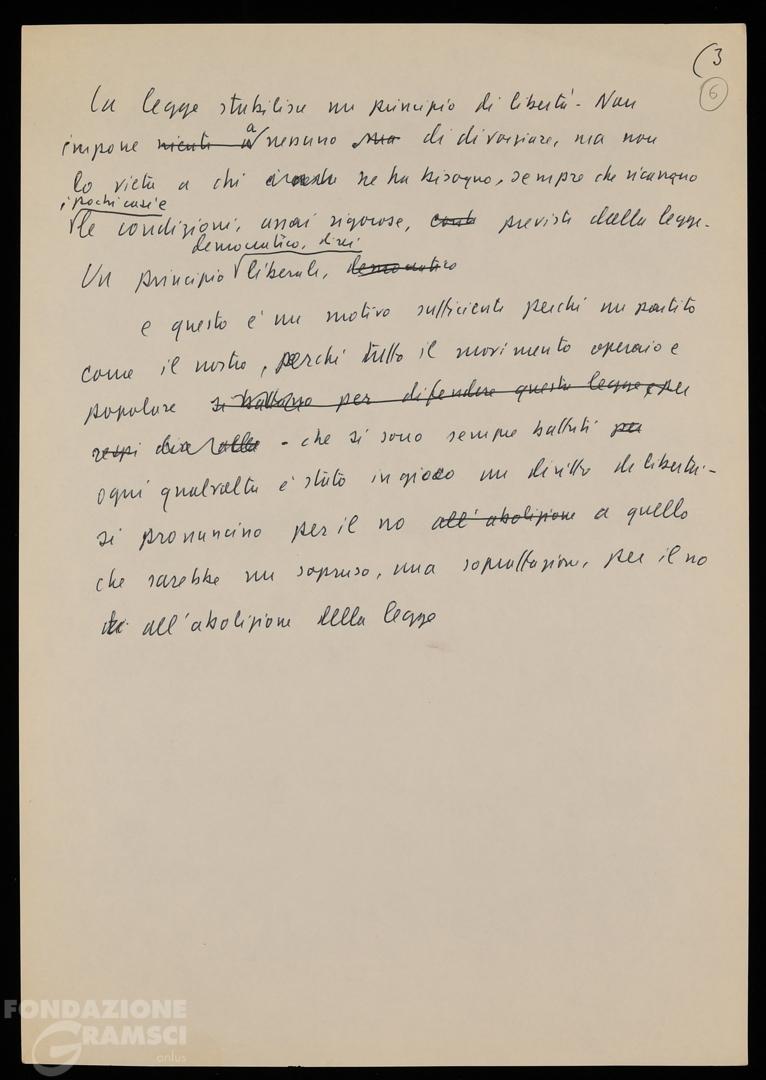 (3
6
La legge stabilisce un principio di libertà - Non
impone niente a nessuno di divorziare, ma non
lo vieta a chi ne ha bisogno, sempre che ricorrano
i pochi casi e
le condizioni, assai rigorose, previste dalla legge.
democratico, direi
Un principio liberale, democratico
e questo è un motivo sufficiente perché un partito
come il nostro, perché tutto il movimento operaio e
popolare si battano per difendere questa legge e per
- che si sono sempre battuti per
ogni qualvolta è stato in gioco un diritto di libertà -
si pronuncino per il no all'abolizione a quello
che sarebbe un sopruso, una sopraffazione, per il no
all'abolizione della legge
FONDAZIONE
GRAMSCI
onlus